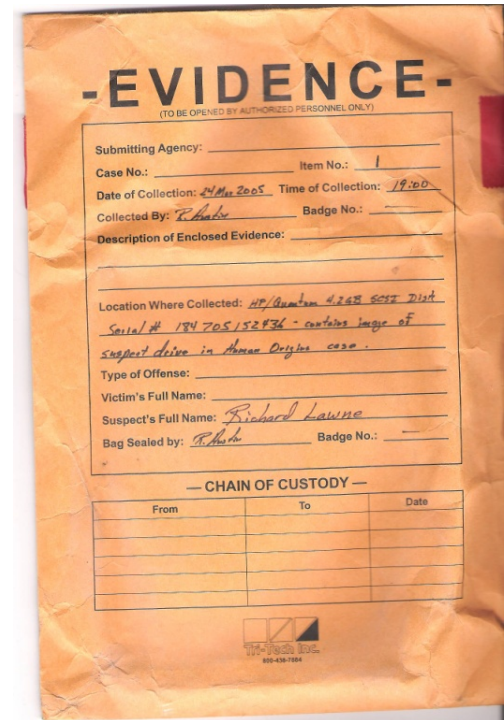 -EVIDENCE-
(TO BE OPENED BY AUTHORIZED PERSONNEL ONLY)
Submitting Agency:
Case No.: Item No.: 1
Date of Collection: 24 Mar 2005 Time of Collection: 19:00
Collected By: R. Austin Badge No.:
Description of Enclosed Evidence:
Location Where Collected: HP/Quantum 4.2GB SCSI Disk
Serial # 184705152436 - contains image of
suspect drive in Human Origins case.
Type of Offense:
Victim's Full Name:
Suspect's Full Name: Richard Lawne
Bag Sealed by: R. Austin Badge No.:
— CHAIN OF CUSTODY —
From To Date
Tri-Tech Inc.
800-438-7884